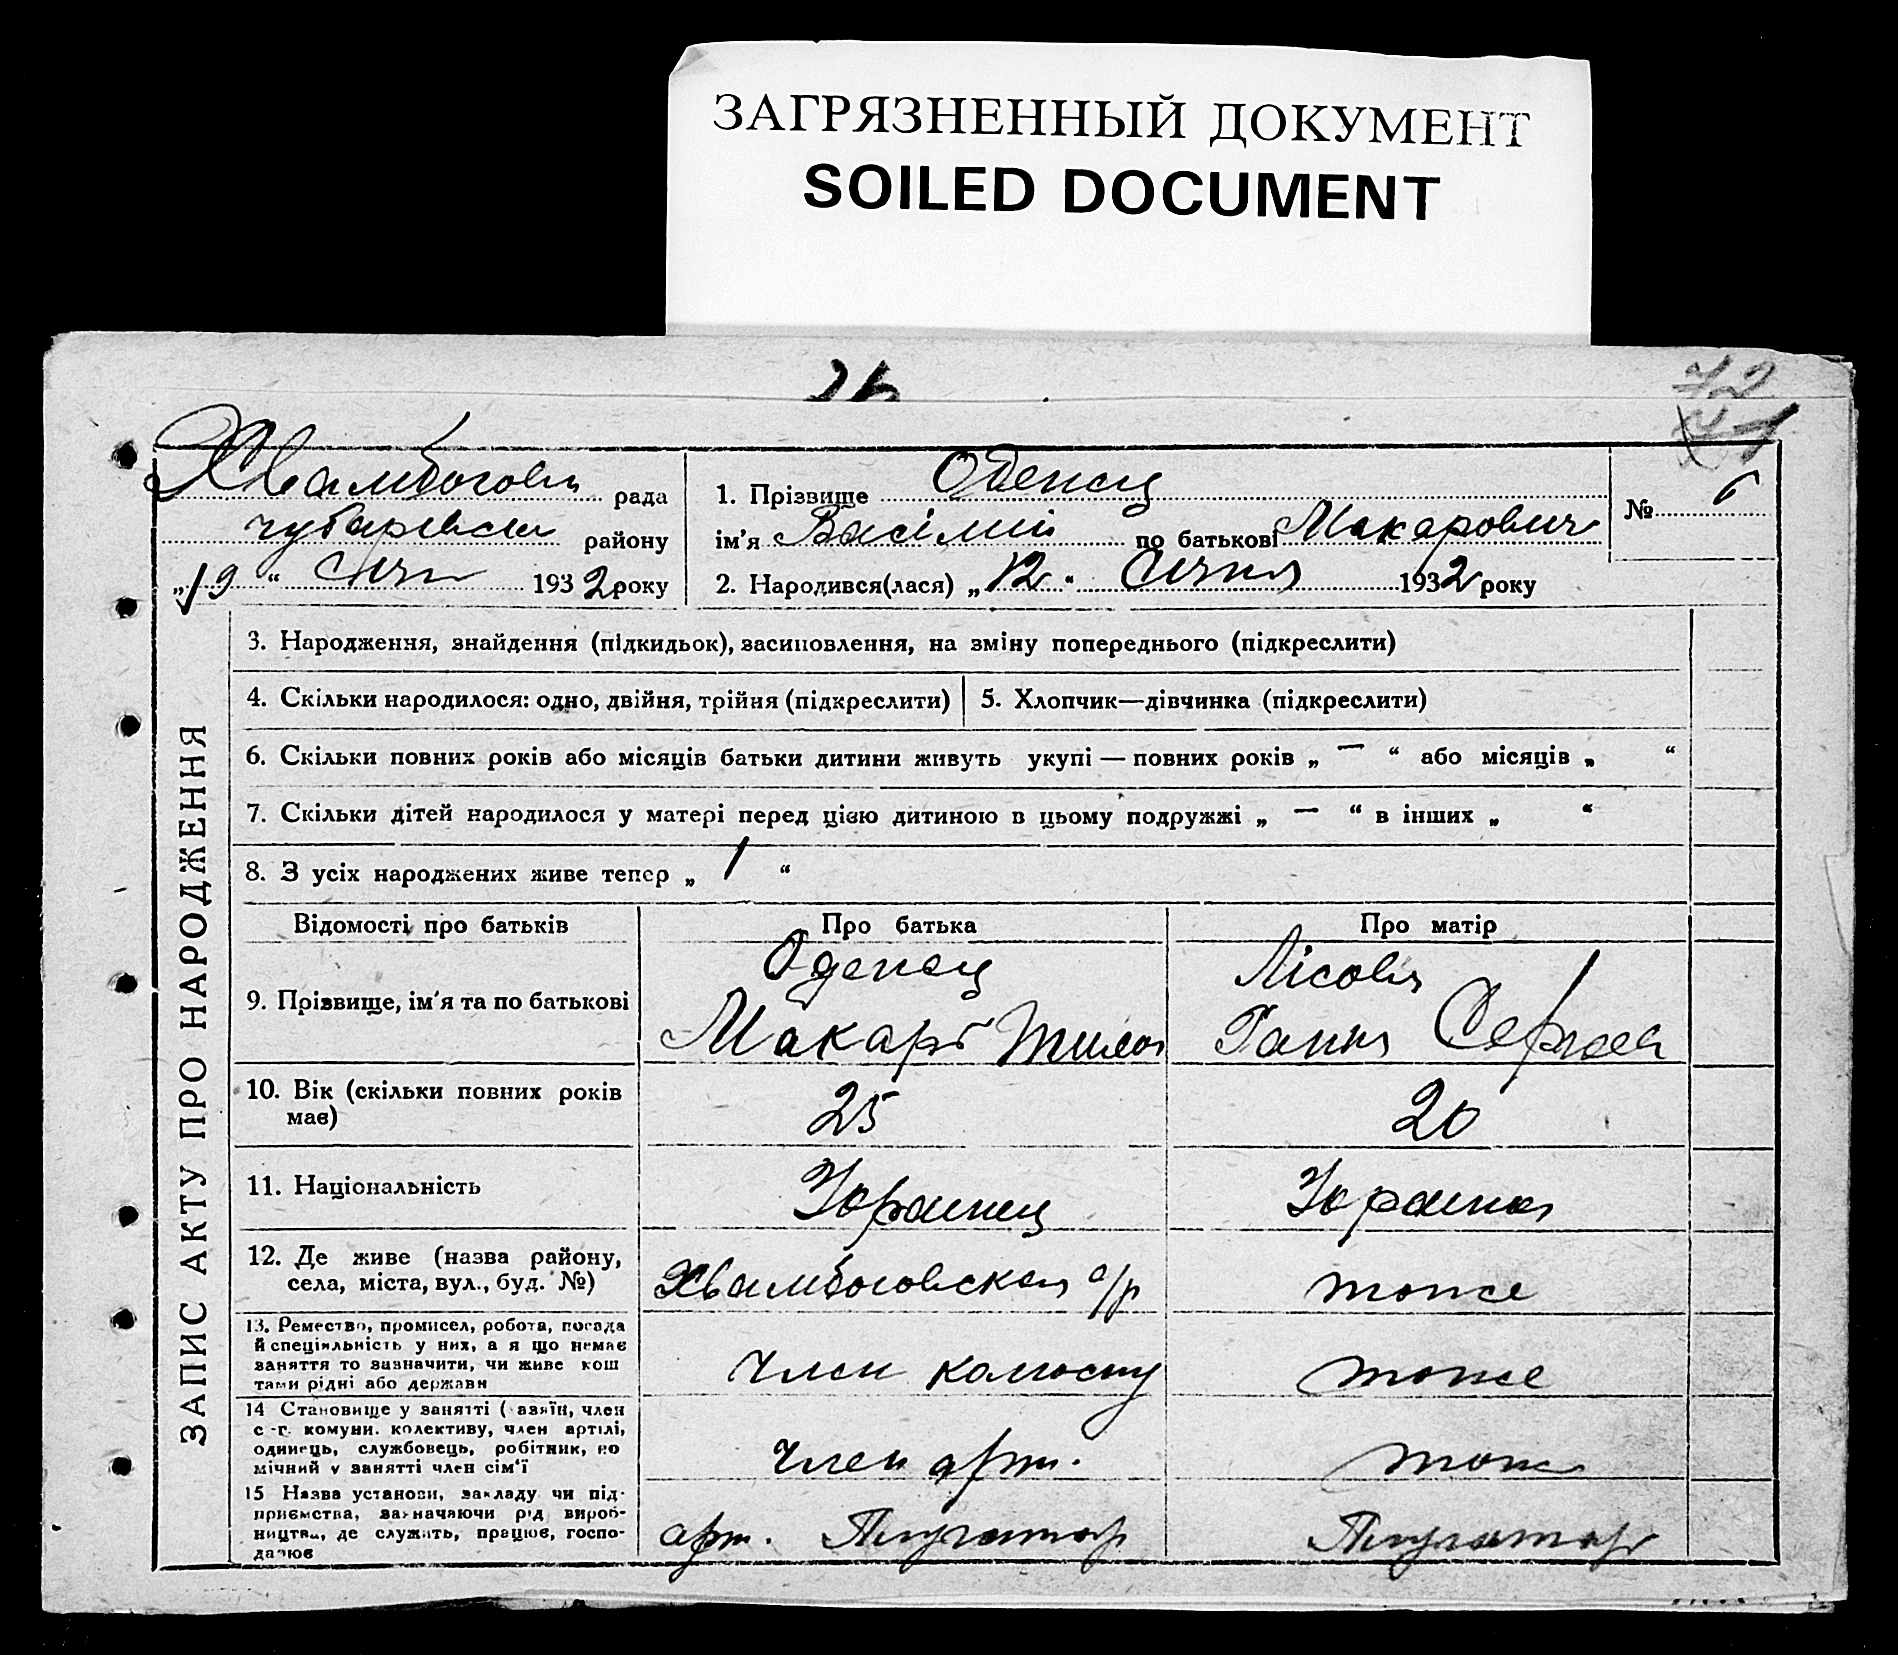 ЗАГРЯЗНЕННЫЙ ДОКУМЕНТ
SOILED DOCUMENT
72
71
рада
району
„19“ 1932 року
1. Прізвище Оденец
№ 6
ім'я Василий по батькові Макарович
2. Народився(лася) „12“ Січня 1932 року
ЗАПИС АКТУ ПРО НАРОДЖЕННЯ
3. Народження, знайдення (підкидьок), засиновлення, на зміну попереднього (підкреслити)
4. Скільки народилося: одно, двійня, трійня (підкреслити)
5. Хлопчик—дівчинка (підкреслити)
6. Скільки повних років або місяців батьки дитини живуть укупі — повних років „ — “ або місяців „ “
7. Скільки дітей народилося у матері перед цією дитиною в цьому подружжі „ — “ в інших „ “
8. З усіх народжених живе тепер „ 1 “
Відомості про батьків
Про батька
Про матір
9. Прізвище, ім'я та по батькові
Оденец
Макар
Лісовая
Ганна
10. Вік (скільки повних років
має)
25
20
11. Національність
12. Де живе (назва району,
села, міста, вул., буд. №)
с/р
тоже
13. Ремество, промисел, робота, посада
й спеціяльність у них, а я що немає
заняття то зазначити, чи живе кош
тами рідні або держави
член
тоже
14 Становище у занятті ( азяїн, член
с -г. комуни. колективу, член артілі,
одинець, службовець, робітник, по
мічний у занятті член сім'ї
член арт.
тож
15 Назва установи, закладу чи під-
приємства, зазначаючи рід вироб-
ництва, де служить, працює, госпо-
дарює
арт.